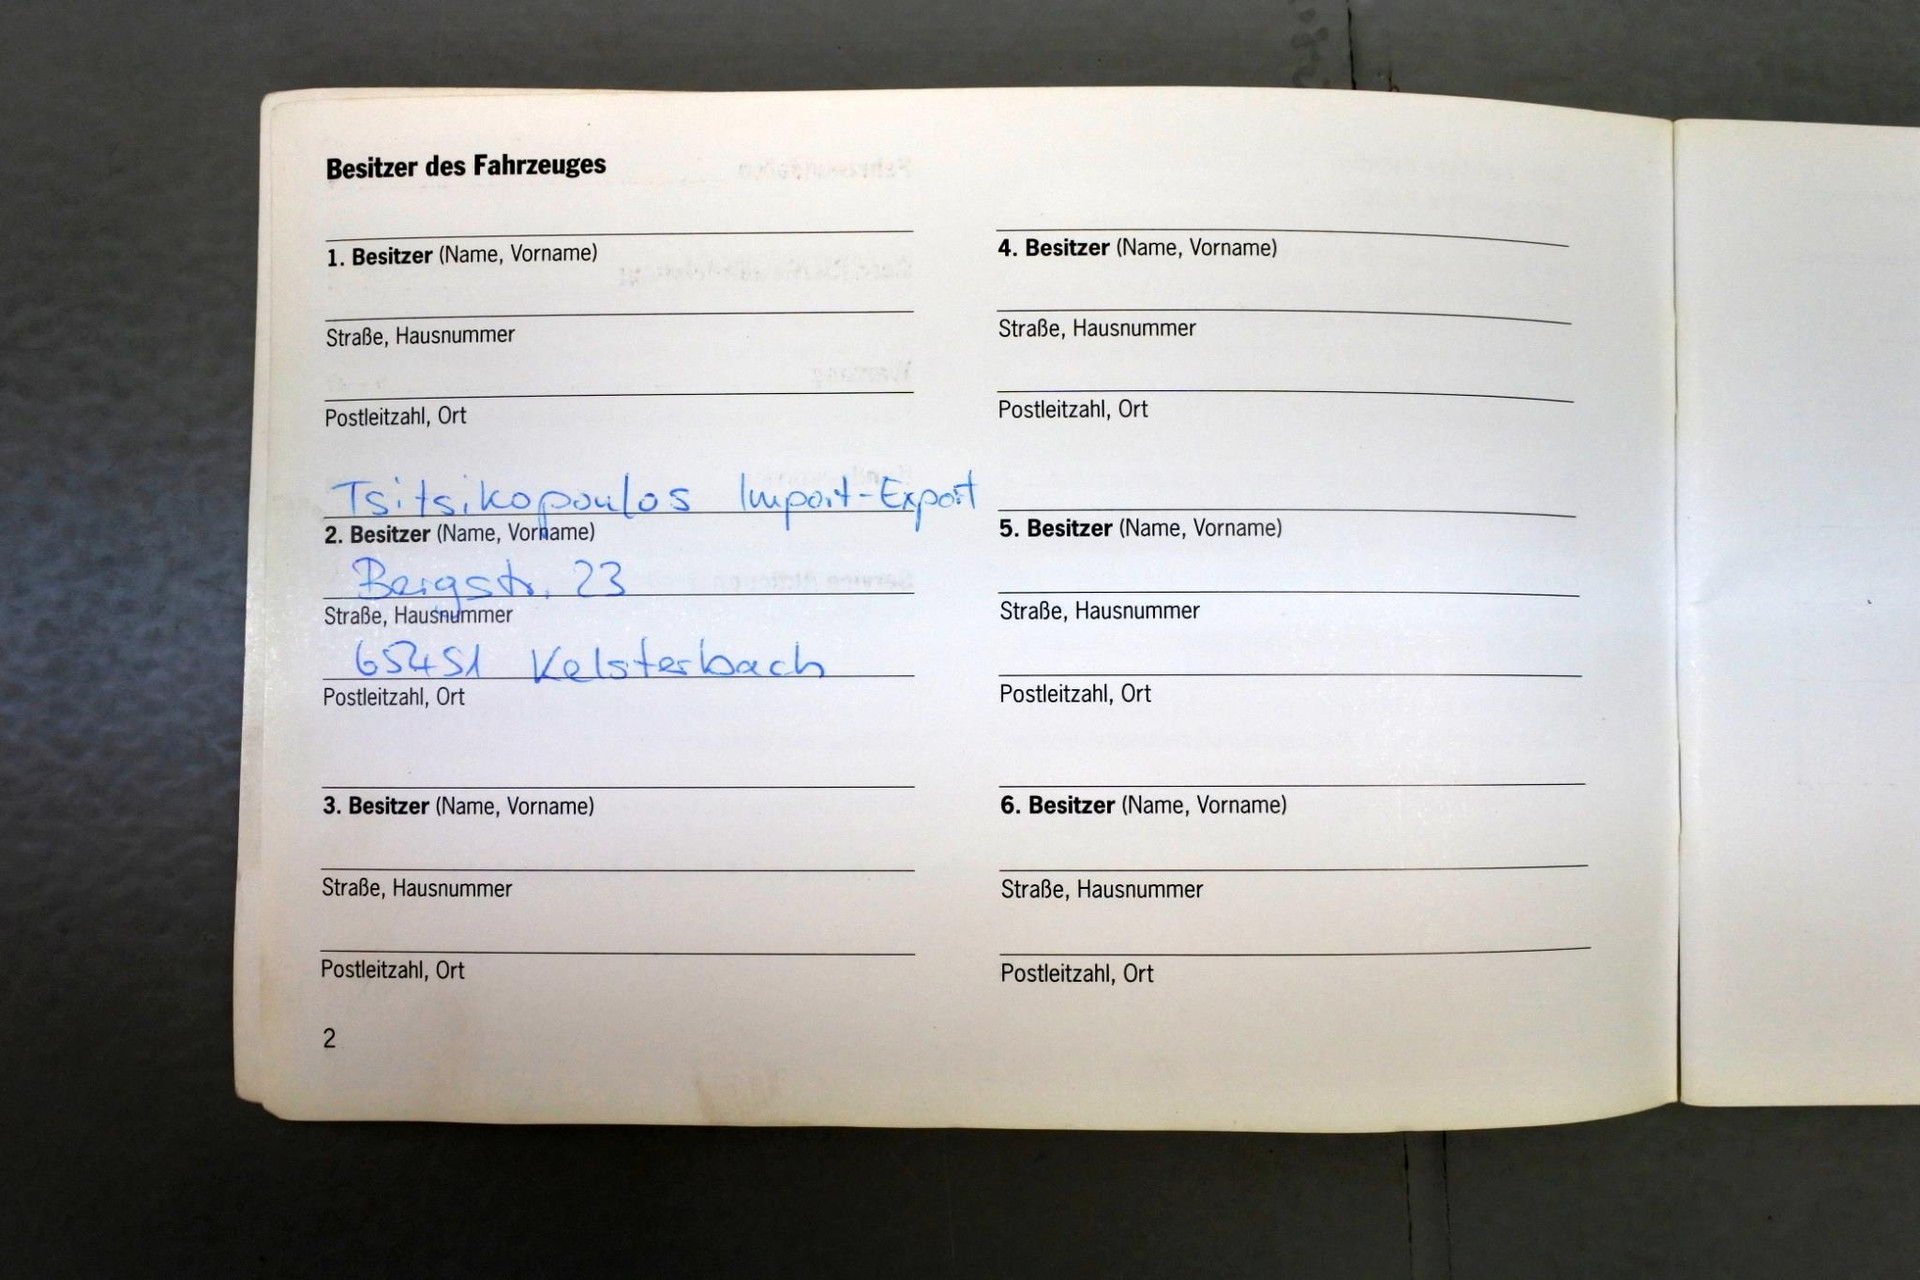 Besitzer des Fahrzeuges
1. Besitzer (Name, Vorname)
Straße, Hausnummer
Postleitzahl, Ort
Tsitsikopoulos Import-Export
2. Besitzer (Name, Vorname)
Bergstr. 23
Straße, Hausnummer
65451 Kelsterbach
Postleitzahl, Ort
3. Besitzer (Name, Vorname)
Straße, Hausnummer
Postleitzahl, Ort
2
4. Besitzer (Name, Vorname)
Straße, Hausnummer
Postleitzahl, Ort
5. Besitzer (Name, Vorname)
Straße, Hausnummer
Postleitzahl, Ort
6. Besitzer (Name, Vorname)
Straße, Hausnummer
Postleitzahl, Ort